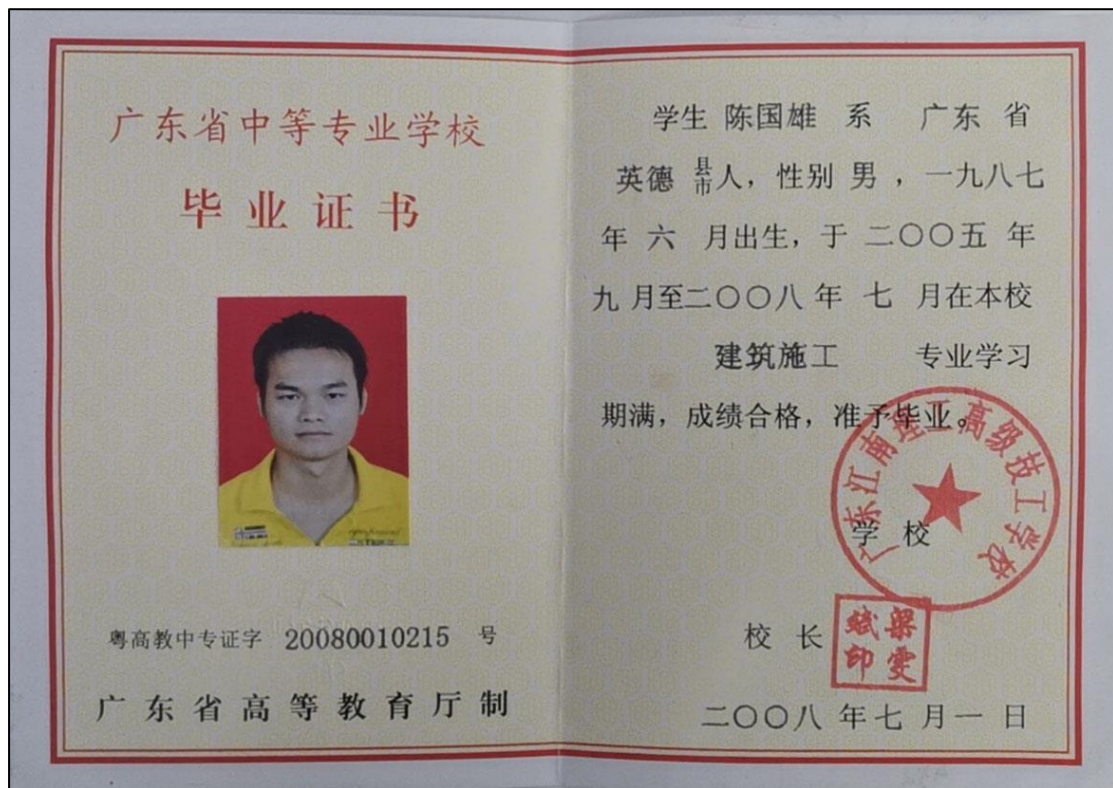 广东省中等专业学校
毕业证书
粤高教中专证字 20080010215 号
广东省高等教育厅制
学生 陈国雄 系 广东 省
英德 县市人，性别 男 ，一九八七
年 六 月出生，于 二〇〇五 年
九 月至二〇〇八 年 七 月在本校
建筑施工 专业学习
期满，成绩合格，准予毕业。
广东江南理工高级技工学校
学 校
校 长
梁雯斌印
二〇〇八 年 七 月 一 日